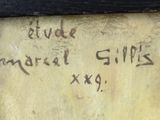 étude
marcel Gillis
xxg.